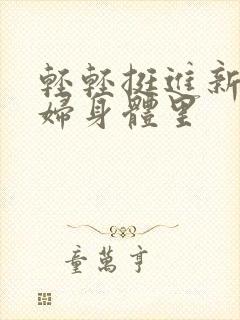 輕輕挺進新
婦身體里
童萬亨